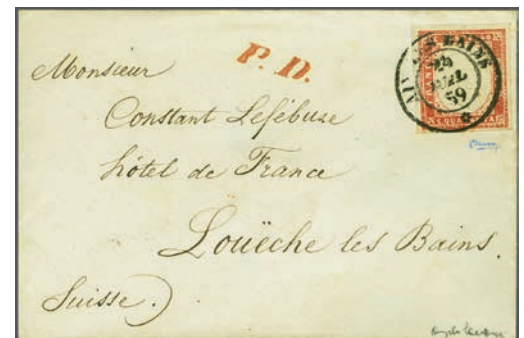 P. D.
AIX LES BAINS
24
JUIL
59
Monsieur
Constant Lefébure
hôtel de France
Louëche les Bains.
Suisse.)